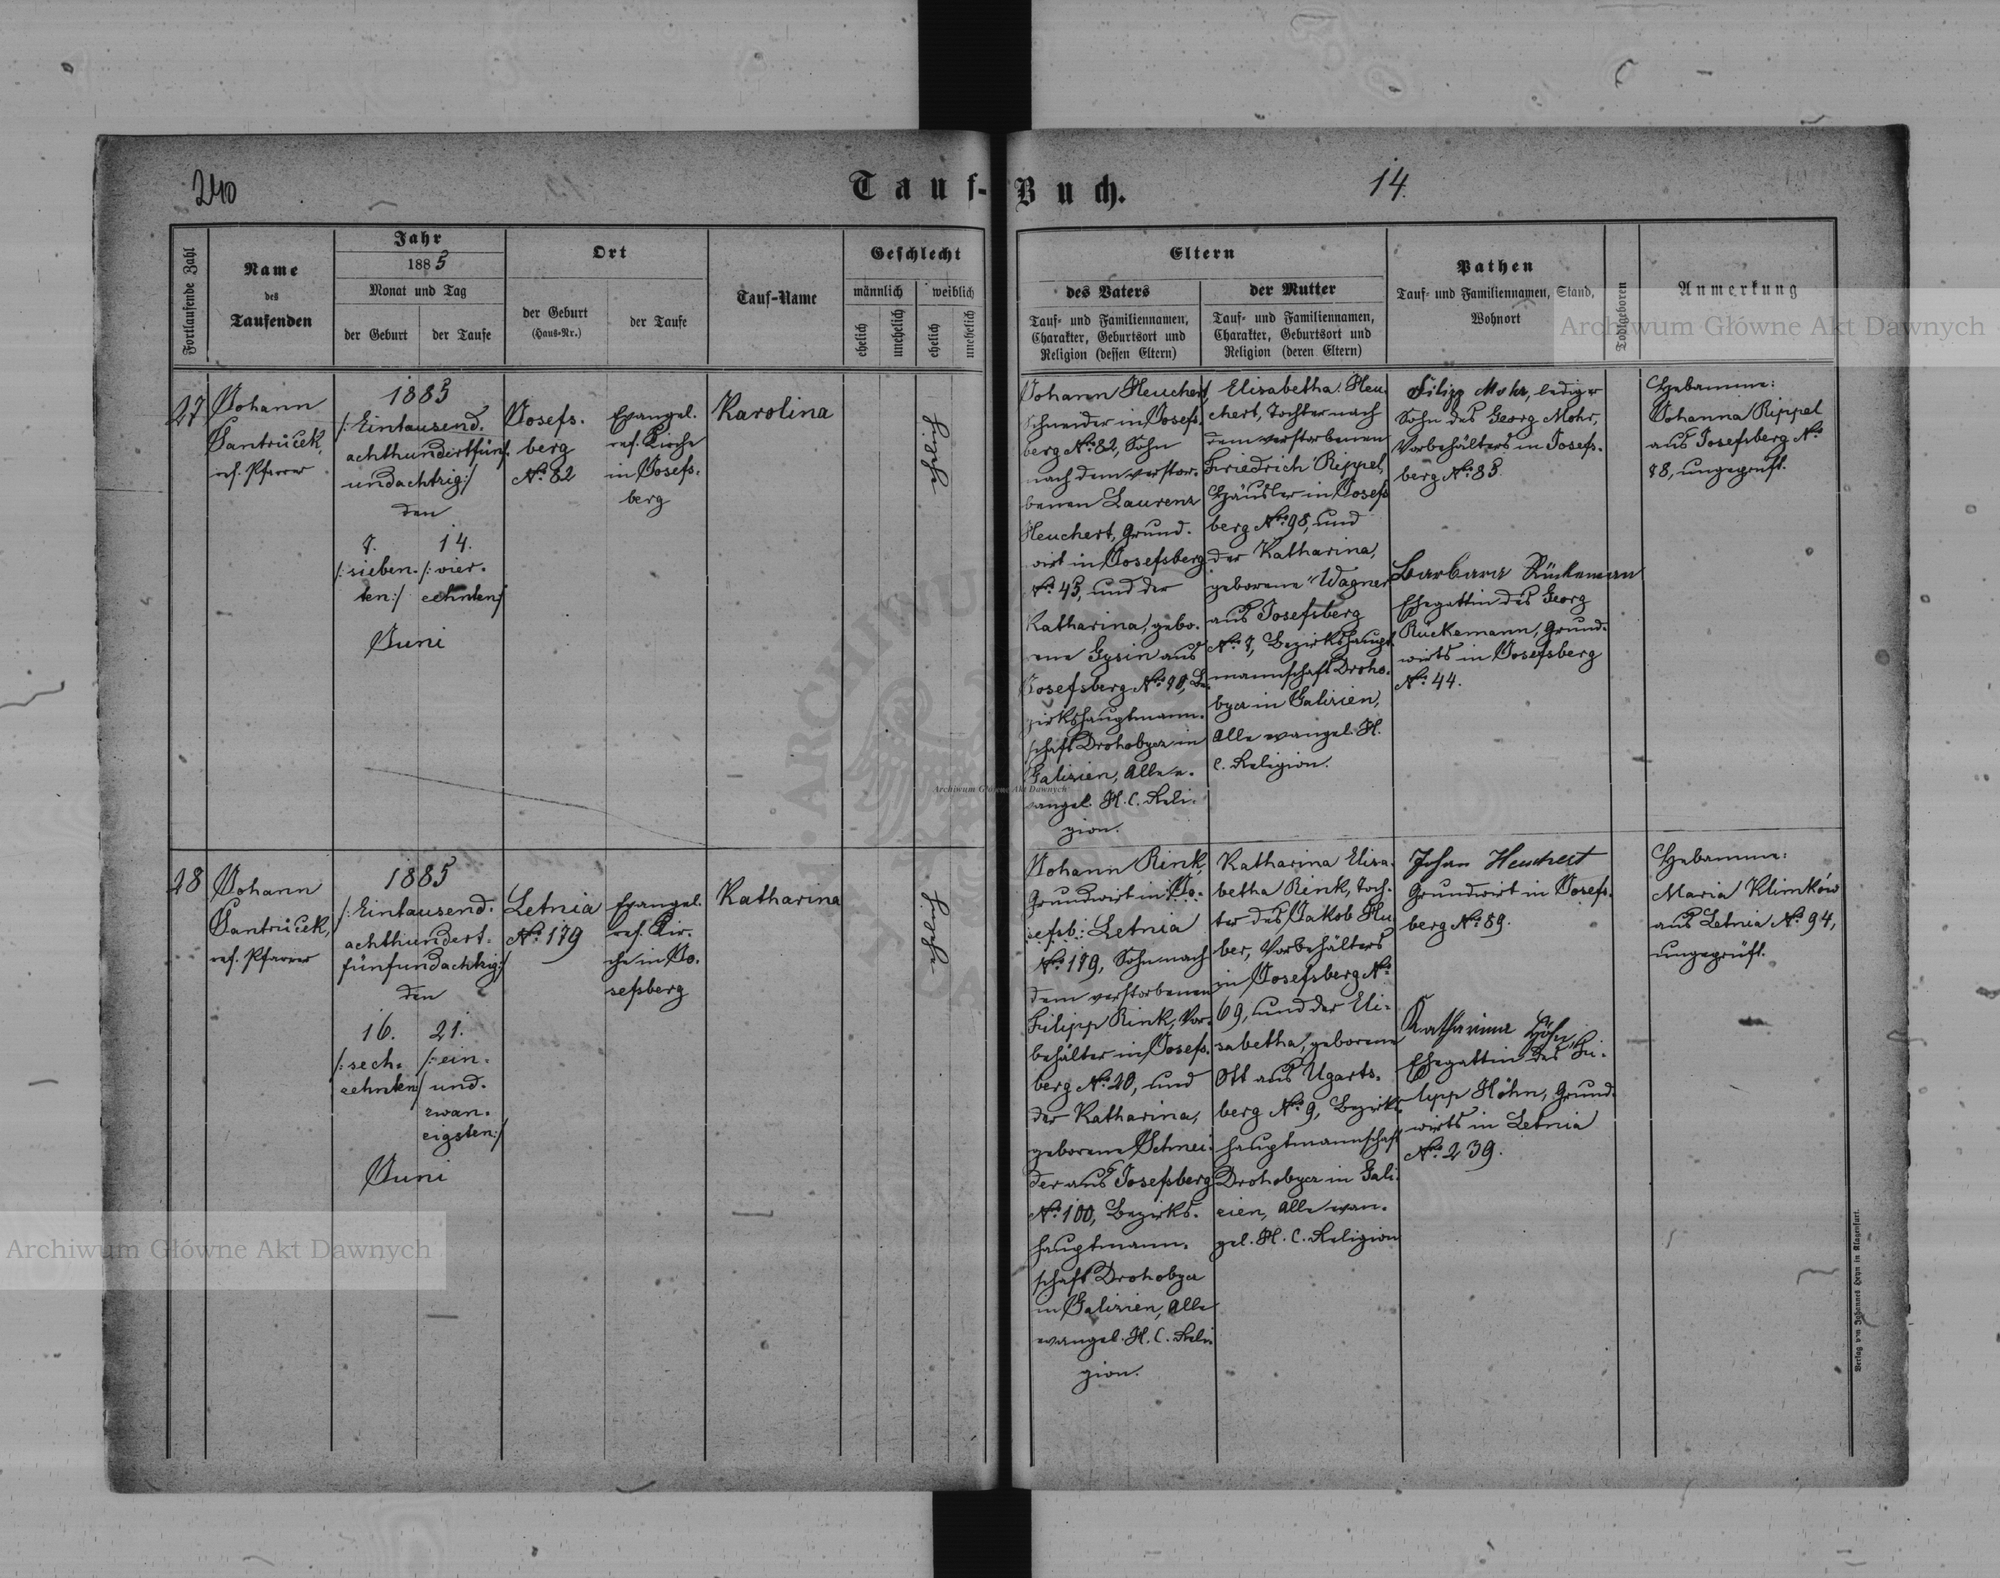 240
Tauf-Buch.
14.
Fortlaufende Zahl
Name
des
Taufenden
Jahr
1885
Monat und Tag
der Geburt
der Taufe
Ort
der Geburt
(Haus-Nr.)
der Taufe
Tauf-Name
Geschlecht
männlich
weiblich
ehelich
unehelich
ehelich
unehelich
Eltern
des Vaters
Tauf- und Familiennamen,
Charakter, Geburtsort und
Religion (dessen Eltern)
der Mutter
Tauf- und Familiennamen,
Charakter, Geburtsort und
Religion (deren Eltern)
Pathen
Tauf- und Familiennamen, Stand,
Wohnort
Todtgeboren
Anmerkung
27
Johann
Jantrůček,
ref. Pfarrer
1885
/:Eintausend-
achthundertfünf-
undachtzig:/
den
7.
/:sieben-
ten:/
14.
/:vier-
zehnten:/
Juni
Josefs-
berg
No. 82
Evangel.
ref. Kirche
in Josefs-
berg
Karolina
ehelich
Johann Heuchert,
Schneider in Josefs-
berg No. 82, Sohn
nach dem verstor-
benen Laurenz
Heuchert, Grund-
wirt in Josefsberg
No. 43, und der
Katharina, gebo-
rene Gysin aus
Josefsberg No. 90, Be-
zirkshauptmann-
schaft Drohobycz in
Galizien, Alle e-
vangel. H. C. Reli-
gion.
Elisabetha Heu-
chert, Tochter nach
dem verstorbenen
Friedrich Rippel,
Häusler in Josefs-
berg No. 98, und
der Katharina,
geborene Wagner
aus Josefsberg
No. 7, Bezirkshaupt-
mannschaft Droho-
bycz in Galizien,
Alle evangel. H.
C. Religion.
Filipp Mohr, lediger
Sohn des Georg Mohr,
Vorbehälters in Josefs-
berg No. 83
Barbara Rückeman
Ehegattin des Georg
Rückemann, Grund-
wirts in Josefsberg
No. 44.
Hebamme:
Johanna Rippel
aus Josefsberg No.
78, ungeprüft.
28
Johann
Jantrůček,
ref. Pfarrer
1885
/:Eintausend-
achthundert-
fünfundachtzig:/
den
16.
/:sech-
zehnten:/
21.
/:ein-
und-
zwan-
zigsten:/
Juni
Letnia
No. 179
Evangel.
ref. Kir-
che in Jo-
sefsberg
Katharina
ehelich
Johann Rink,
Grundwirt in Jo-
sefsb: Letnia
No. 179, Sohn nach
dem verstorbenen
Filipp Rink, Vor-
behälter in Josefs-
berg No. 20, und
der Katharina,
geborene Schnei-
der aus Josefsberg
No. 100, Bezirks-
hauptmann-
schaft Drohobycz
in Galizien, Alle
evangel. H. C. Reli-
gion.
Katharina Elisa-
betha Rink, Toch-
ter des Jakob Hu-
ber, Vorbehälters
in Josefsberg No.
69, und der Eli-
sabetha, geborene
Ott aus Ugarts-
berg No. 9, Bezirks-
hauptmannschaft
Drohobycz in Gali-
zien, Alle evan-
gel. H. C. Religion
Johan Heuchert
Grundwirt in Josefs-
berg No. 89.
Katharina Höhn,
Ehegattin des Fi-
lipp Höhn, Grund-
wirts in Letnia
No. 239.
Hebamme:
Maria Klimków
aus Letnia No. 94,
ungeprüft.
Verlag von Johannes Heyn in Klagenfurt.
Archiwum Główne Akt Dawnych
Archiwum Główne Akt Dawnych
Archiwum Główne Akt Dawnych